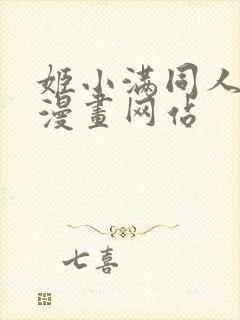 姬小满同人
漫畫网佔
七喜